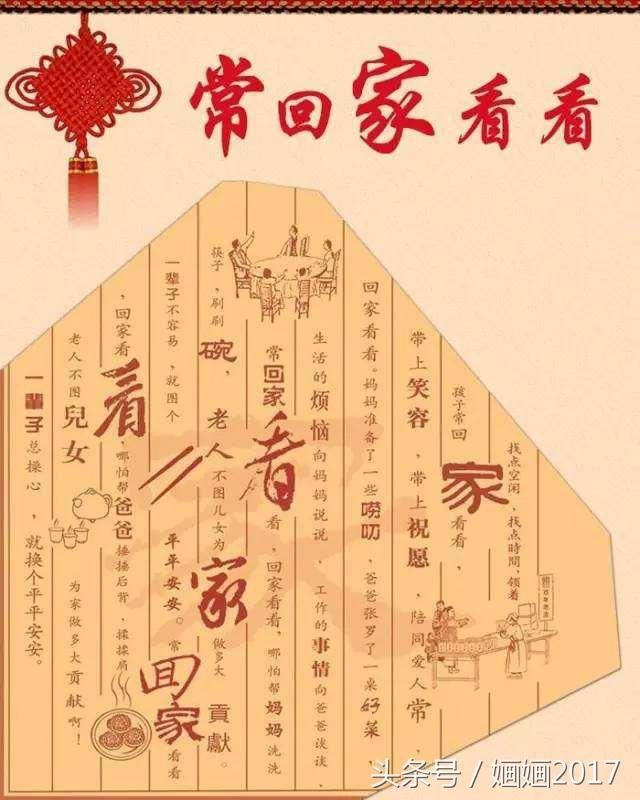 常回家看看
找点空闲，找点時間，领着
孩子常回家看看，
带上笑容，带上祝愿，陪同爱人常，
回家看看。妈妈准备了一些唠叨，爸爸张罗了一桌好菜
生活的烦恼向妈妈说说，工作的事情向爸爸谈谈，
常回家看看，回家看看，哪怕帮妈妈洗洗
筷子，刷刷碗，老人不图儿女为家做多大貢獻。
一辈子不容易，就图个平平安安。常回家看看
，回家看看，哪怕帮爸爸捶捶后背，揉揉肩
老人不图兒女为家做多大贡献啊！
一輩子总操心，就换个平平安安。
头条号 / 婳婳2017